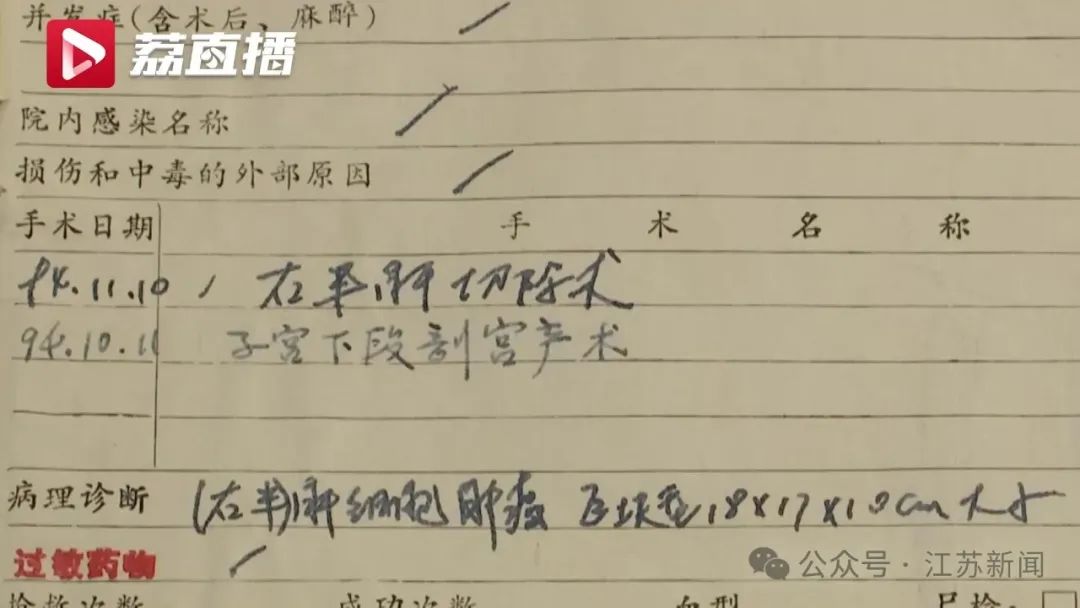 并发症(含术后、麻醉)
荔直播
院内感染名称
损伤和中毒的外部原因
手术日期 手术名称
94.11.10 右半肝切除术
94.10.11 子宫下段剖宫产术
病理诊断 (右半)肝细胞肿瘤 巨块型 18×17×10cm大小
过敏药物
抢救次数 成功次数 血型 尸检:
公众号·江苏新闻